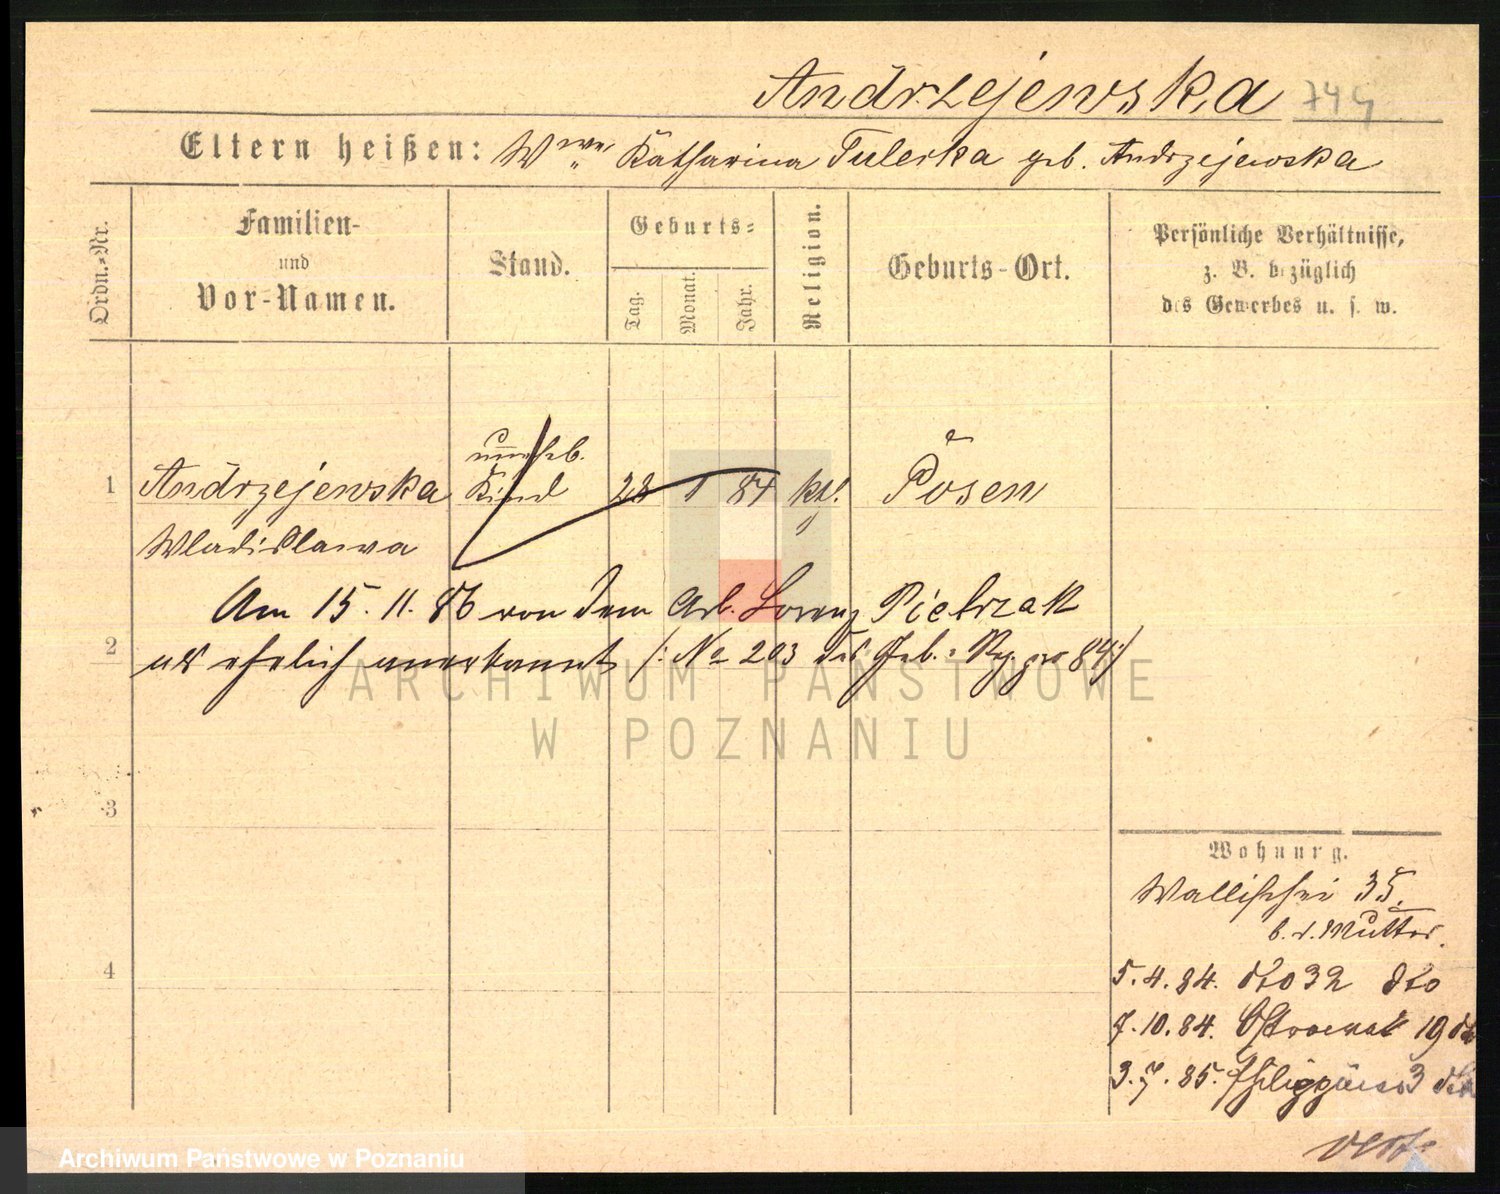 Andrzejewska 744
Eltern heißen: Wwe Katharina Tulecka geb. Andrzejewska
Ordn.-Nr.
Familien-
und
Vor-Namen.
Stand.
Geburts-
Tag. Monat. Jahr.
Religion.
Geburts-Ort.
Persönliche Verhältnisse,
z. B. bezüglich
des Gewerbes u. s. w.
unehel.
1 Andrzejewska Kind 28 1 84 kth. Posen
Wladislawa
Am 15. 11. 86 von dem Arb. Lorenz Pietrzak
2 als ehelich anerkannt /: No 203 des Geb.-Reg. pro 84 :/
3
4
Wohnung.
Wallischei 35.
b. d. Mutter.
5.4.84. dto 32 dto
7.10.84. Ostrowek 19 dto
3.7.85. Philippinen 3 dto
vert.
ARCHIWUM PAŃSTWOWE
W POZNANIU
Archiwum Państwowe w Poznaniu